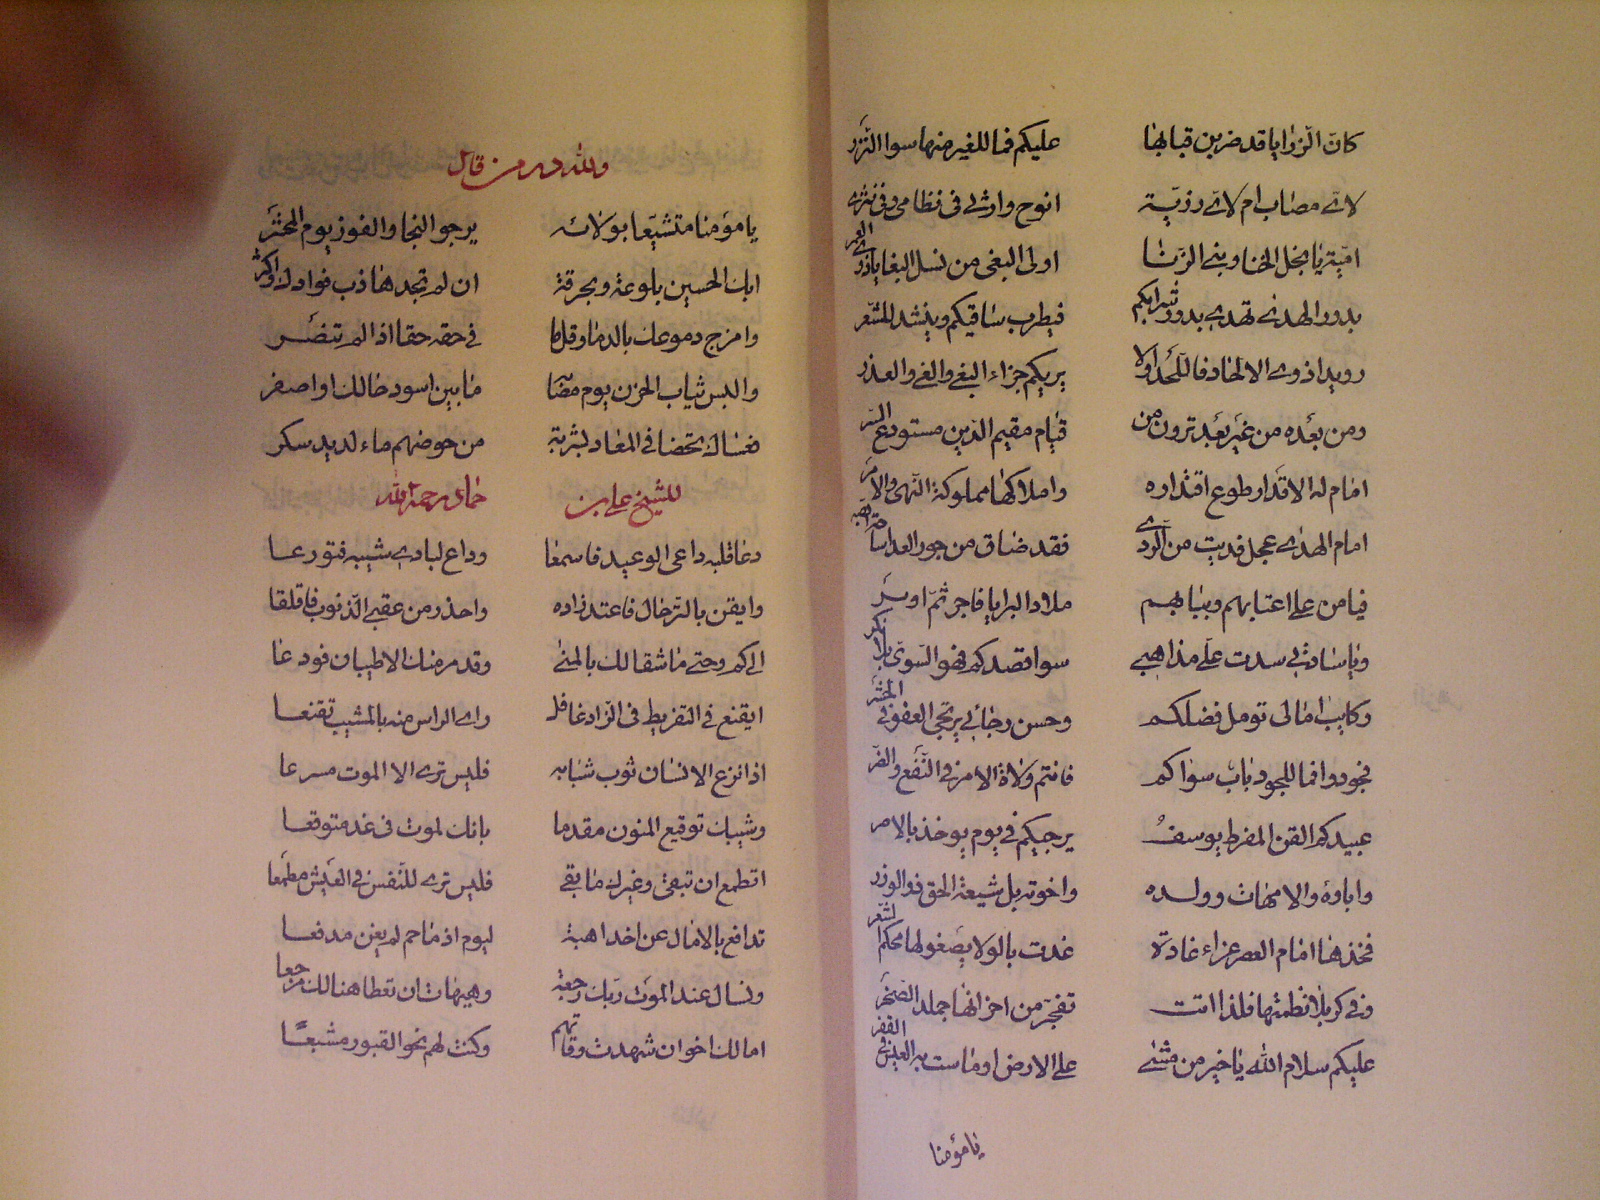 كان الرزايا قد ضربن قبابها عليكم فما للغير منها سوا النزر
لاي مصاب ام لاي رزية انوح وارثي في نظامي وفي نثري
امية يا نجل الخنا وبني الزنا اولى البغي من نسل البغايا ذوي العهر
بدور الهدى تهدى بدور شرابكم فيطرب ساقيكم وينشد للشعر
رويدا ذوي الالحاد فالله يريكم جزاء البغي والغي والغدر
ومن بعده من غير بعد ترون من قيام مقيم الدين مستودع السر
امام له الاقدار طوع اقتداره واملاكها مملوكة النهي والامر
امام الهدى عجل فديت من الردى فقد ضاق من جور العدا
فيا من على اعتابهم وببابهم ملاذ البرايا فاجر ثم او بر
ويا سادتي سدت علي مذاهبي سوا قصدكم فهو السوي بلا نكر
وكايب امالي تومل فضلكم وحسن رجائي يرتجي العفو في الحشر
فجودوا فما للجود باب سواكم فانتم ولاة الامر في النفع والضر
عبيدكم القن المفرط يوسف يرجيكم في يوم يوخذ بالامر
واباؤه والامهات وولده واخوته بل شيعة الحق ذو الوزر
فخذها امام العصر عزاء غادة غدت بالولا يصغو لها محكم الشعر
وفي كربلا نظمتها فلذا اتت تفجر من احزانها جملد الصخر
عليكم سلام الله يا خير من مشى على الارض او ماست به العيس في القفر
يا مؤمنا
ولله در من قال
يا مؤمنا متشيعا بولائه يرجو النجا والفوز يوم المحشر
ابك الحسين بلوعة وبحرقة ان لم تجدها ذب فوادك واكثر
وامزج دموعك بالدما وقل ما في حقه حقا اذا لم تنصر
والبس ثياب الحزن يوم مصابه ما بين اسود حالك او اصفر
فعساك تحضا في المعاد بشربة من حوضهم ماء لديد سكر
للشيخ علي بن حماد رحمه الله
دعا قلبه داعي الوعيد فاسمعا وداع لبادي شيبه فتورعا
وايقن بالترحال فاعتد زاده واحذر من عقبى الذنوب فاقلقا
الى كم وحتى ما شقالك بالمنى وقد مر منك الاطيبان فودعا
ايقنع في التفريط في الزاد غافل واي الراس منه بالمشيب تقنعا
اذا نزع الانسان ثوب شبابه فليس ترى الا الموت مسرعا
وشيبك توقيع المنون مقدما بانك لموت في غد متوقعا
اتطمع ان تبقى وغيرك ما بقي فليس ترى للنفس في العيش مطمعا
تدافع بالامال عن اخذ اهبة ليوم اذ ما حم لم يغن مدفعا
وتسال عند الموت ربك رجعة وهيهات ان تعطا هنالك مرجعا
امالك اخوان شهدت وفاتهم وكنت لهم نحو القبور مشيعا